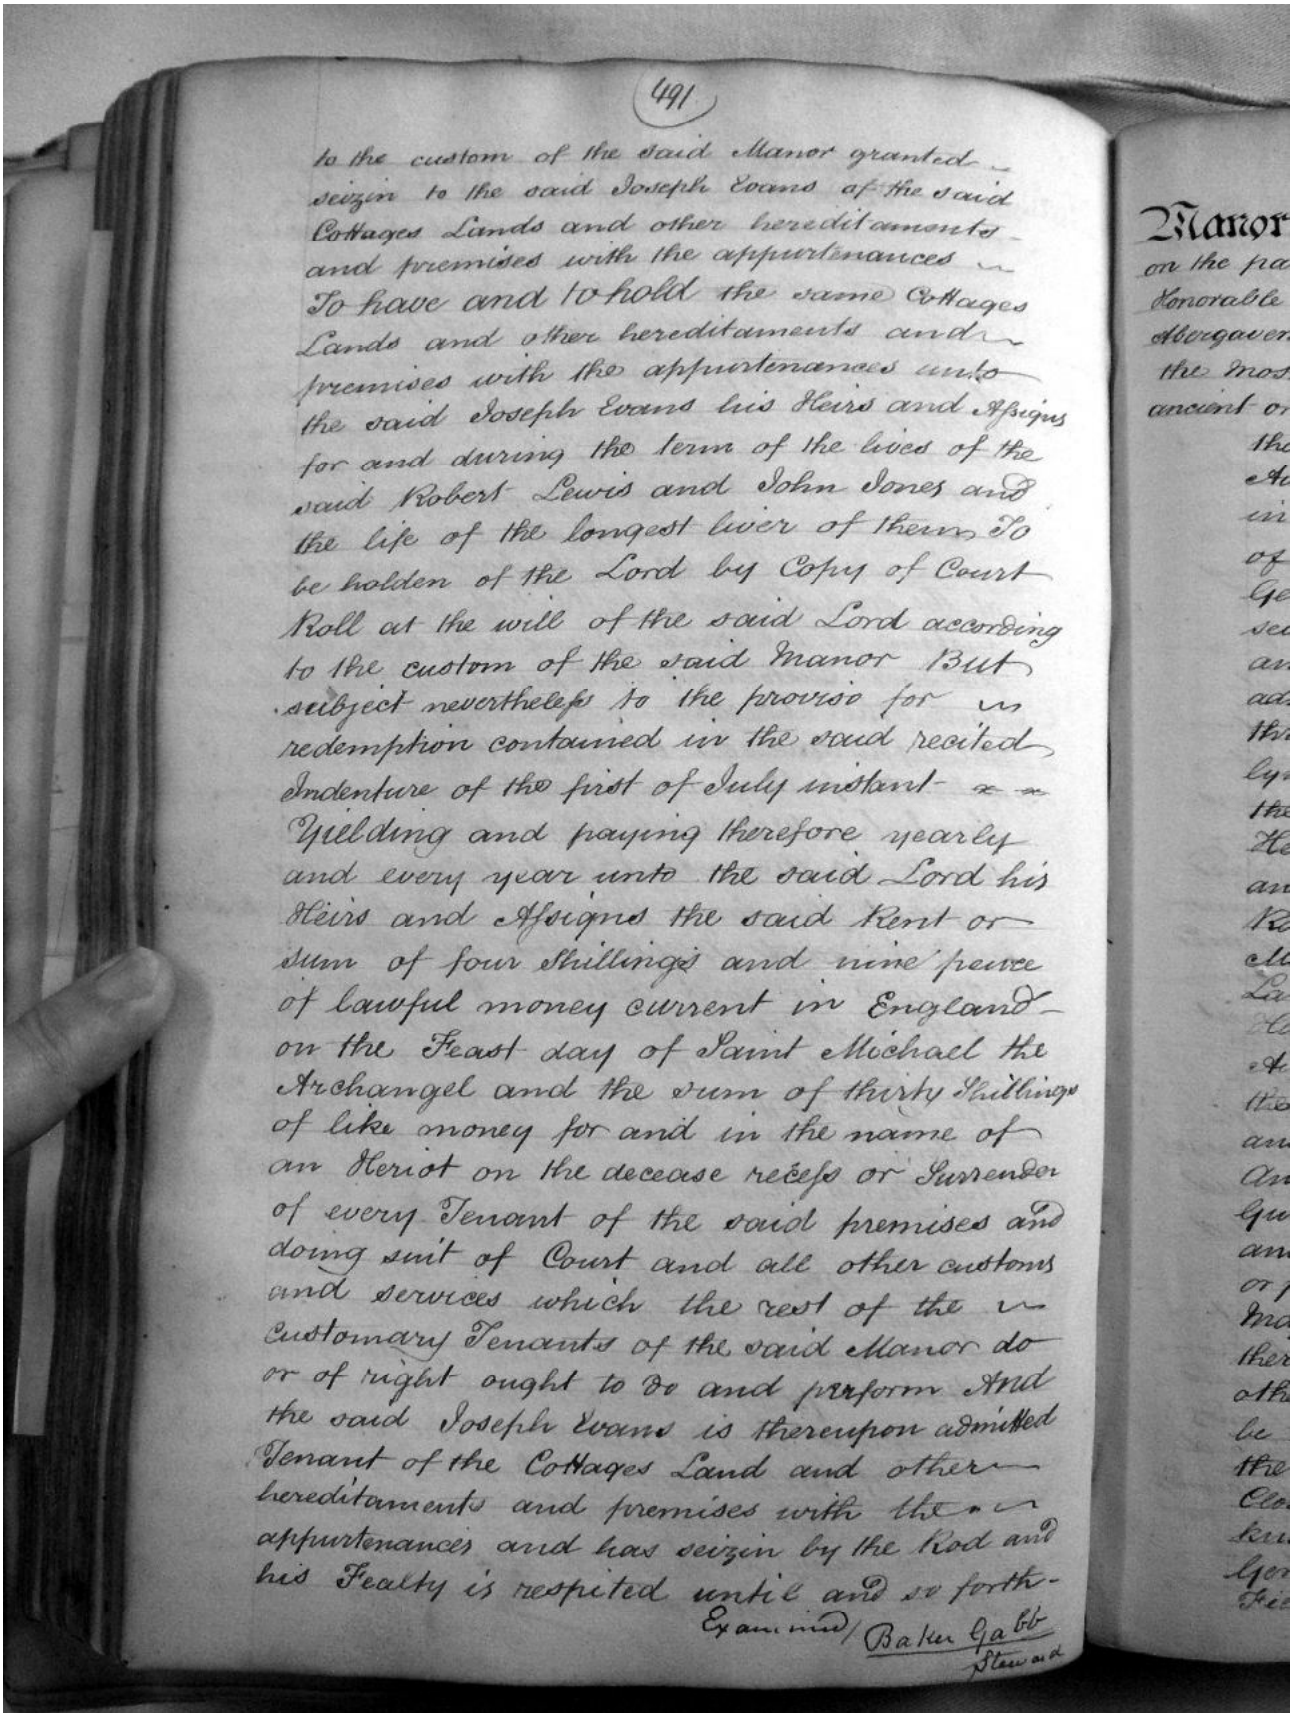 491
to the custom of the said Manor granted
seizin to the said Joseph Evans of the said
Cottages Lands and other hereditaments
and premises with the appurtenances
To have and to hold the same Cottages
Lands and other hereditaments and
premises with the appurtenances unto
the said Joseph Evans his Heirs and Assigns
for and during the term of the lives of the
said Robert Lewis and John Jones and
the life of the longest liver of them To
be holden of the Lord by Copy of Court
Roll at the will of the said Lord according
to the custom of the said Manor But
subject nevertheless to the proviso for
redemption contained in the said recited
Indenture of the first of July instant
Yielding and paying therefore yearly
and every year unto the said Lord his
Heirs and Assigns the said Rent or
sum of four Shillings and nine pence
of lawful money current in England
on the Feast day of Saint Michael the
Archangel and the sum of thirty Shillings
of like money for and in the name of
an Heriot on the decease recess or Surrender
of every Tenant of the said premises and
doing suit of Court and all other customs
and services which the rest of the
customary Tenants of the said Manor do
or of right ought to do and perform And
the said Joseph Evans is thereupon admitted
Tenant of the Cottages Land and other
hereditaments and premises with the
appurtenances and has seizin by the Rod and
his Fealty is respited until and so forth-
Examined/ Baker Gabb
Steward
Manor
on the
Honorable
the
ancient
in
of
the
be
the